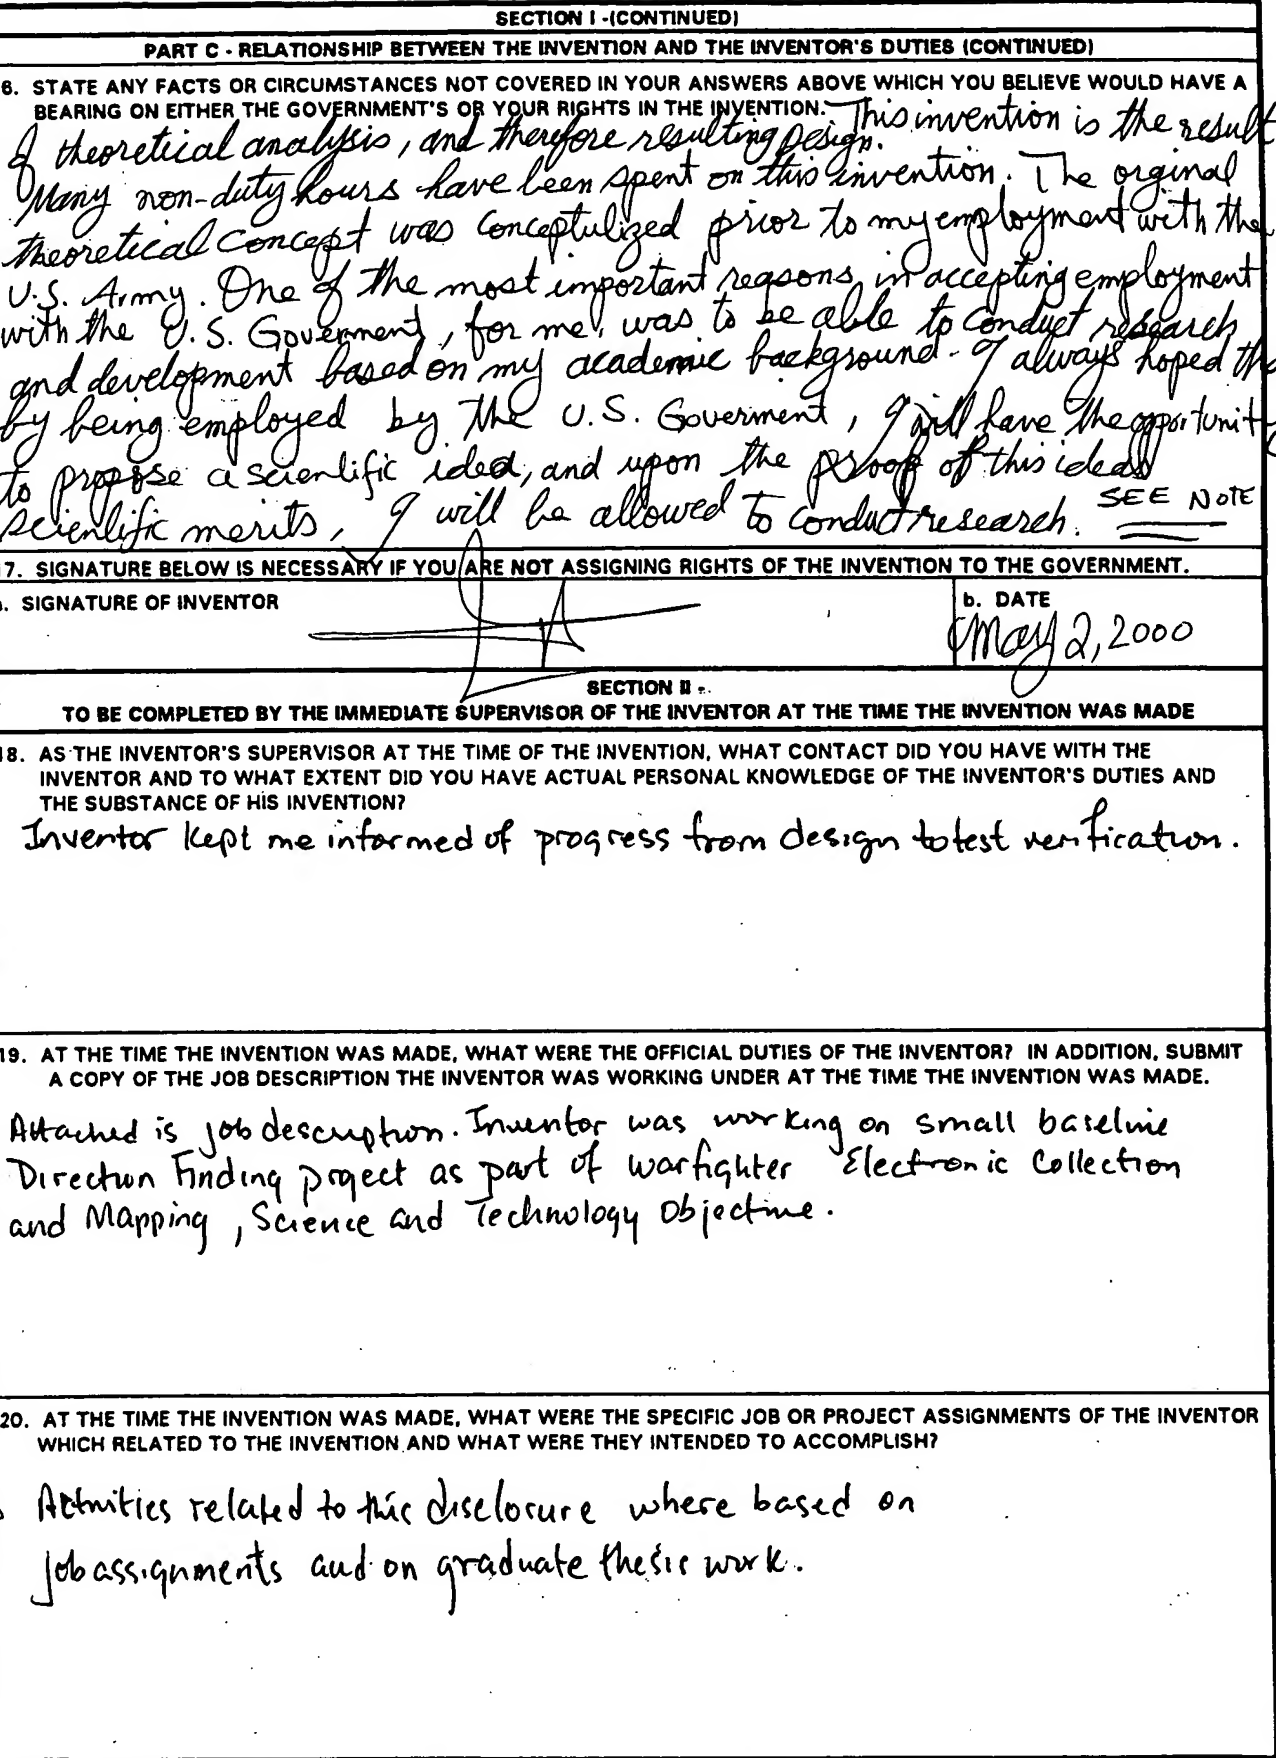 SECTION I -(CONTINUED)
PART C - RELATIONSHIP BETWEEN THE INVENTION AND THE INVENTOR'S DUTIES (CONTINUED)
6. STATE ANY FACTS OR CIRCUMSTANCES NOT COVERED IN YOUR ANSWERS ABOVE WHICH YOU BELIEVE WOULD HAVE A
BEARING ON EITHER THE GOVERNMENT'S OR YOUR RIGHTS IN THE INVENTION. This invention is the result
of theoretical analysis, and therefore resulting design.
Many non-duty hours have been spent on this invention. The orginal
theoretical concept was conceptulized prior to my employment with the
U.S. Army. One of the most important reasons, in accepting employment
with the U.S. Goverment, for me, was to be able to conduct research
and development based on my academic background. I always hoped tha
by being employed by the U.S. Goverment, I will have the opportunity
to propose a scientific idea, and upon the proof of this ideas
scientific merits, I will be allowed to conduct research. SEE NOTE
7. SIGNATURE BELOW IS NECESSARY IF YOU ARE NOT ASSIGNING RIGHTS OF THE INVENTION TO THE GOVERNMENT.
. SIGNATURE OF INVENTOR
b. DATE
May 2, 2000
SECTION II -
TO BE COMPLETED BY THE IMMEDIATE SUPERVISOR OF THE INVENTOR AT THE TIME THE INVENTION WAS MADE
18. AS THE INVENTOR'S SUPERVISOR AT THE TIME OF THE INVENTION, WHAT CONTACT DID YOU HAVE WITH THE
INVENTOR AND TO WHAT EXTENT DID YOU HAVE ACTUAL PERSONAL KNOWLEDGE OF THE INVENTOR'S DUTIES AND
THE SUBSTANCE OF HIS INVENTION?
Inventor kept me informed of progress from design to test verification.
19. AT THE TIME THE INVENTION WAS MADE, WHAT WERE THE OFFICIAL DUTIES OF THE INVENTOR? IN ADDITION, SUBMIT
A COPY OF THE JOB DESCRIPTION THE INVENTOR WAS WORKING UNDER AT THE TIME THE INVENTION WAS MADE.
Attached is job description. Inventor was working on small baseline
Direction Finding project as part of warfighter Electronic Collection
and Mapping, Science and Technology Objective.
20. AT THE TIME THE INVENTION WAS MADE, WHAT WERE THE SPECIFIC JOB OR PROJECT ASSIGNMENTS OF THE INVENTOR
WHICH RELATED TO THE INVENTION AND WHAT WERE THEY INTENDED TO ACCOMPLISH?
Activities related to this disclosure where based on
job assignments and on graduate thesis work.